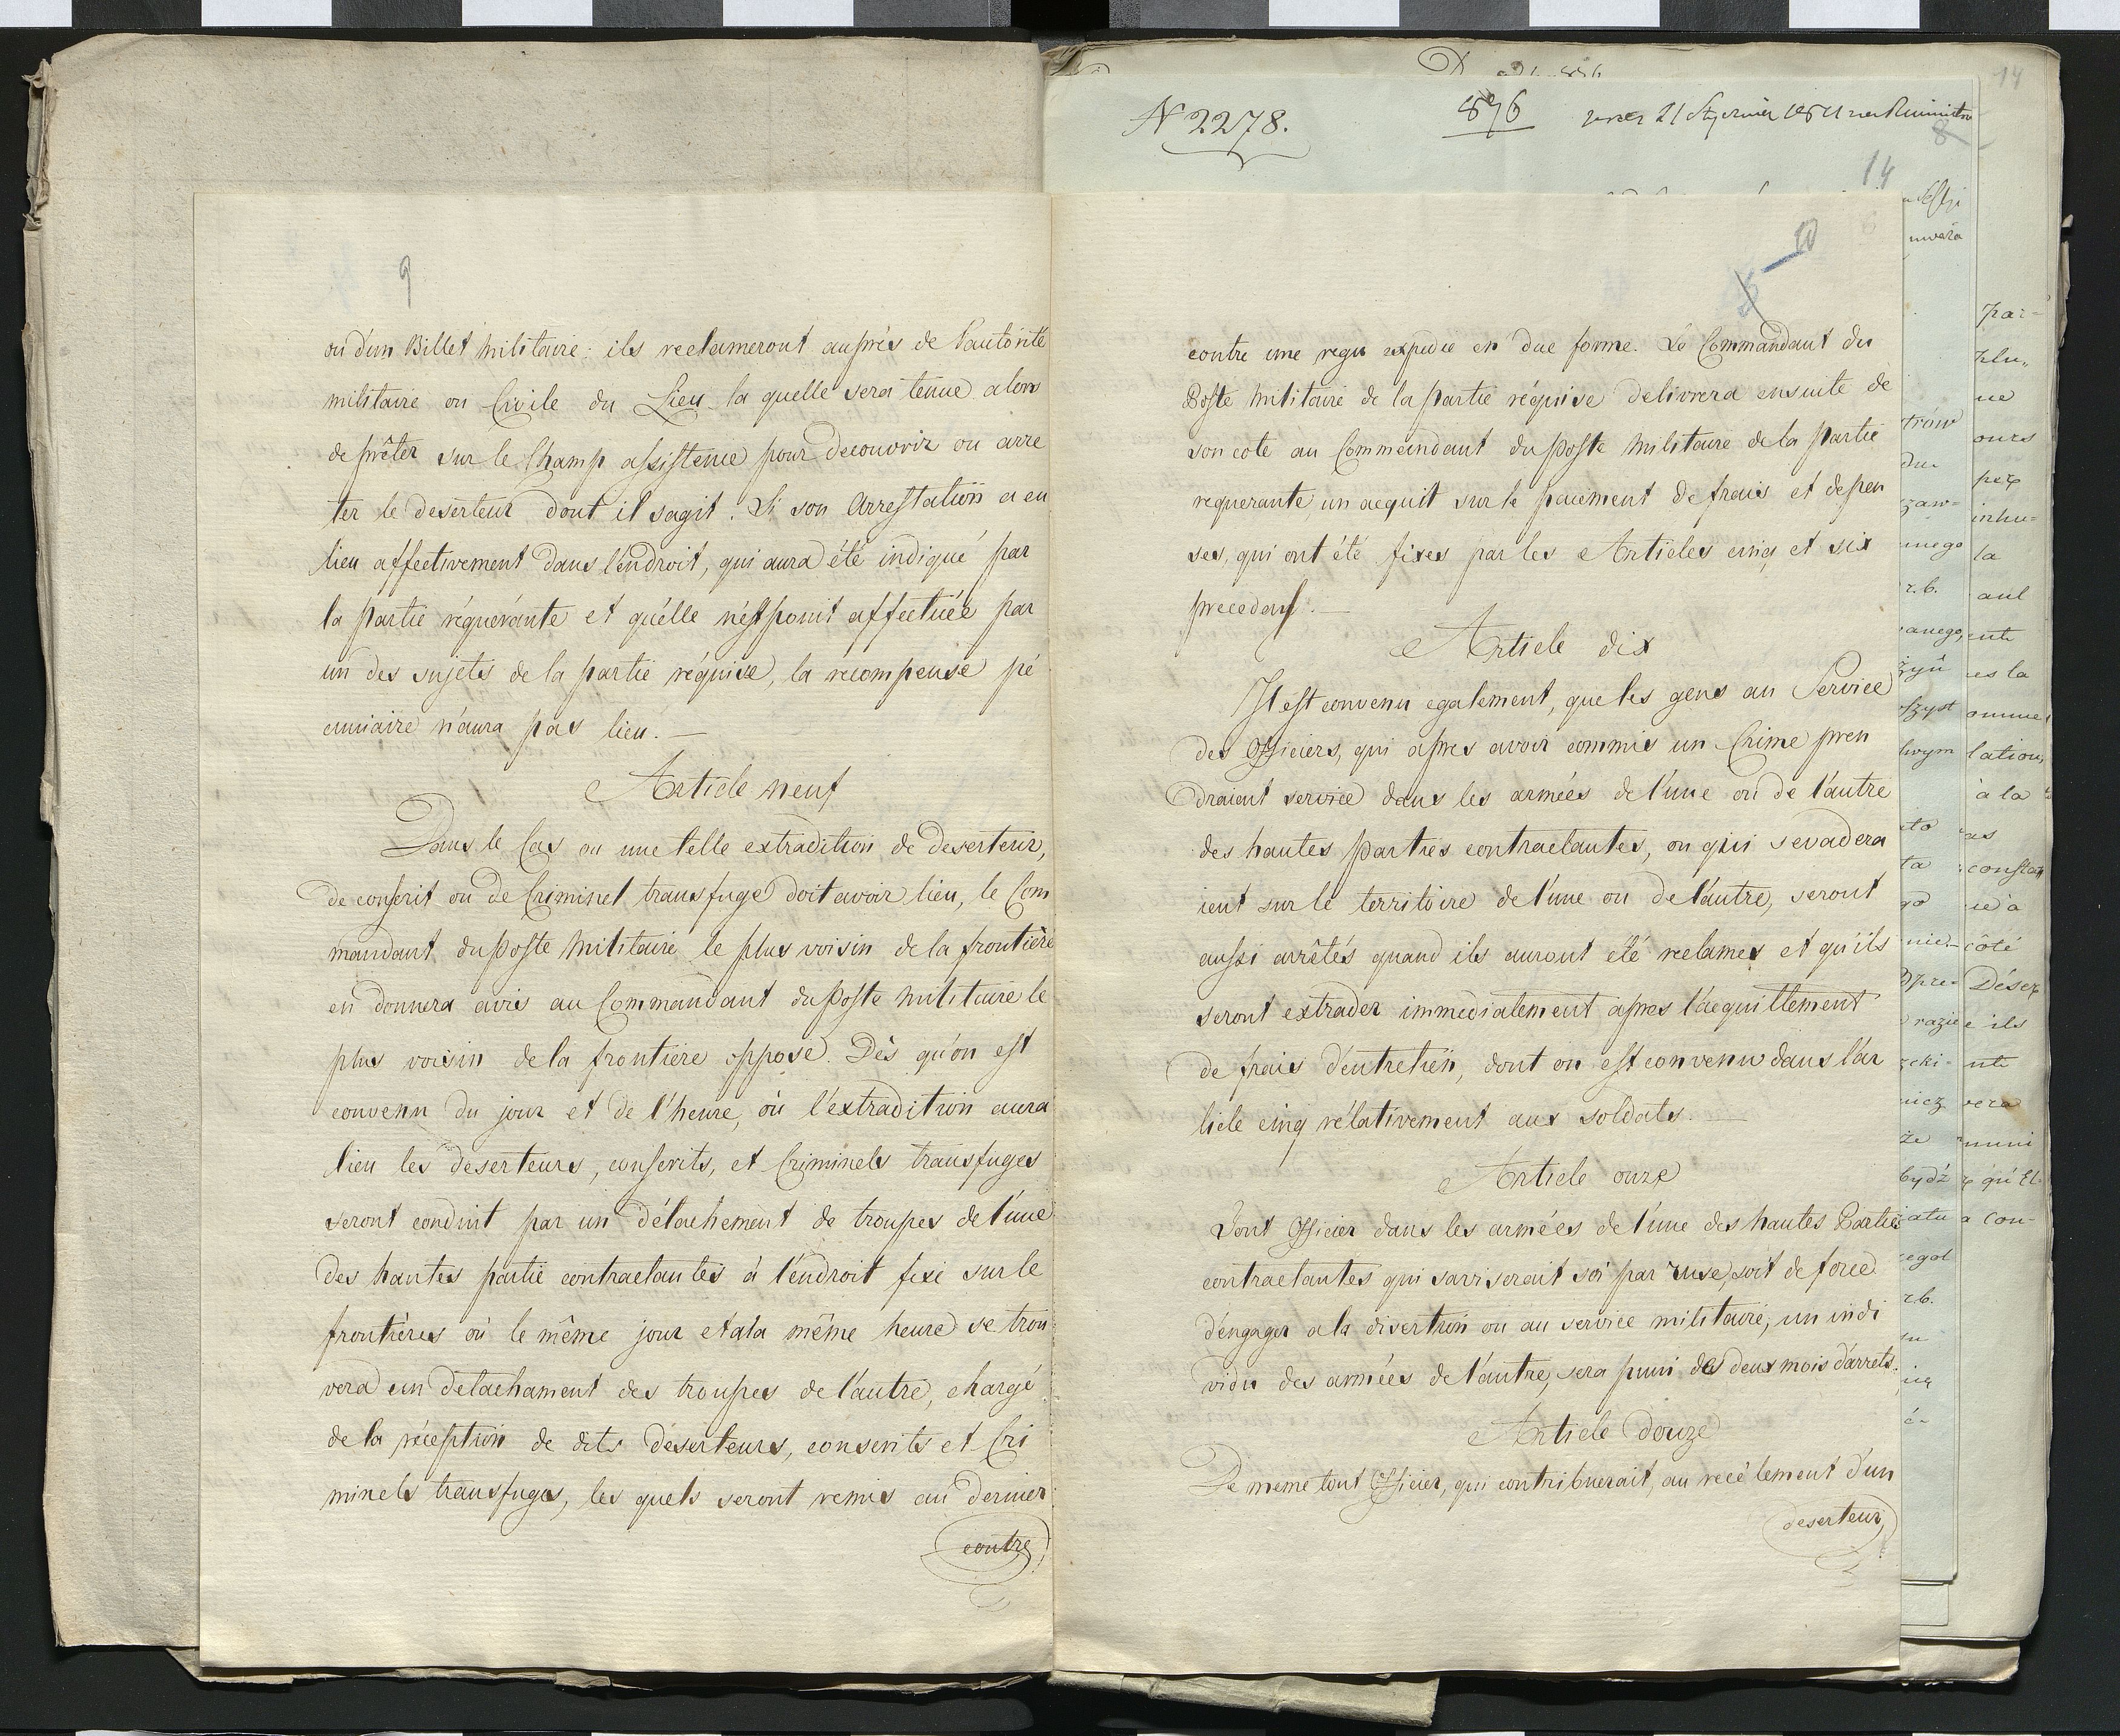 9
ou d'un Billet militaire: ils reclameront auprès de l'autorité
militaire ou Civile du Lieu la quelle sera tenue alors
de prêter sur le Champ assistence pour decouvrir ou arre
ter le deserteur dont il sagit. Si son Arrestation a eu
lieu affectivement dans l'endroit, qui aura été indiqué par
la partie réquerante et qu'elle n'est point affectuée par
un des sujets de la partie réquise, la recompense pé
cuniaire n'aura pas lieu. —
Article neuf
Dans le Cas ou une telle extradition de deserteur,
de conscrit ou de Criminel transfuge doit avoir lieu, le Com
mandant du poste militaire le plus voisin de la frontière
en donnera avis au Commandant du poste militaire le
plus voisin de la frontière opposé. Dès qu'on est
convenu du jour et de l'heure, où l'extradition aura
lieu les deserteurs, conscrits, et Criminels transfuges
seront conduit par un détachement de troupes de l'une
des hautes partie contractantes à l'endroit fixé sur le
frontières où le même jour et a la même heure se trou
vera un detachament des troupes de l'autre, chargé
de la réception de dits deserteurs, conscrits et Cri
minels transfuges, les quels seront remis au dernier
contre
N 2278.
876
14
14
8
10
contre une reçu expediée en due forme. Le Commandant du
Poste militaire de la partie réquise delivrera ensuite de
son cote au Commendant du poste militaire de la partie
requerante un acquit sur le paiement de frais et depen
ses, qui ont été fixes par les Articles cinq et six
precedans. —
Article dix
Il est convenu egalement, que les gens au Service
des Officiers, qui apres avoir commis un Crime pren
draient service dans les armées de l'une ou de l'autre
des hautes parties contractantes, ou qui sevadera
ient sur le territoire de l'une ou de l'autre, seront
aussi arrêtés quand ils auront été reclames et qu'ils
seront extrader immediatement apres l'acquittement
de frais d'entretien, dont on est convenu dans l'ar
ticle cinq rélativement aux soldats. —
Article onze
Tout Officier dans les armées de l'une des hautes Parties
contractantes qui saviserait soi par ruse, soit de force
d'engager a la disertion ou au service militaire, un indi
vidu des armées de l'autre, sera puni de deux mois d'arrets.
Article douze
De meme tout Officier, qui contribuerait, au recélement d'un
deserteur,
par=
plu„
ne
ours
inhu=
la
ente
es la
lation,
à la
côté
Désex
e ils
nte
vera
muni
qu'El
a con-